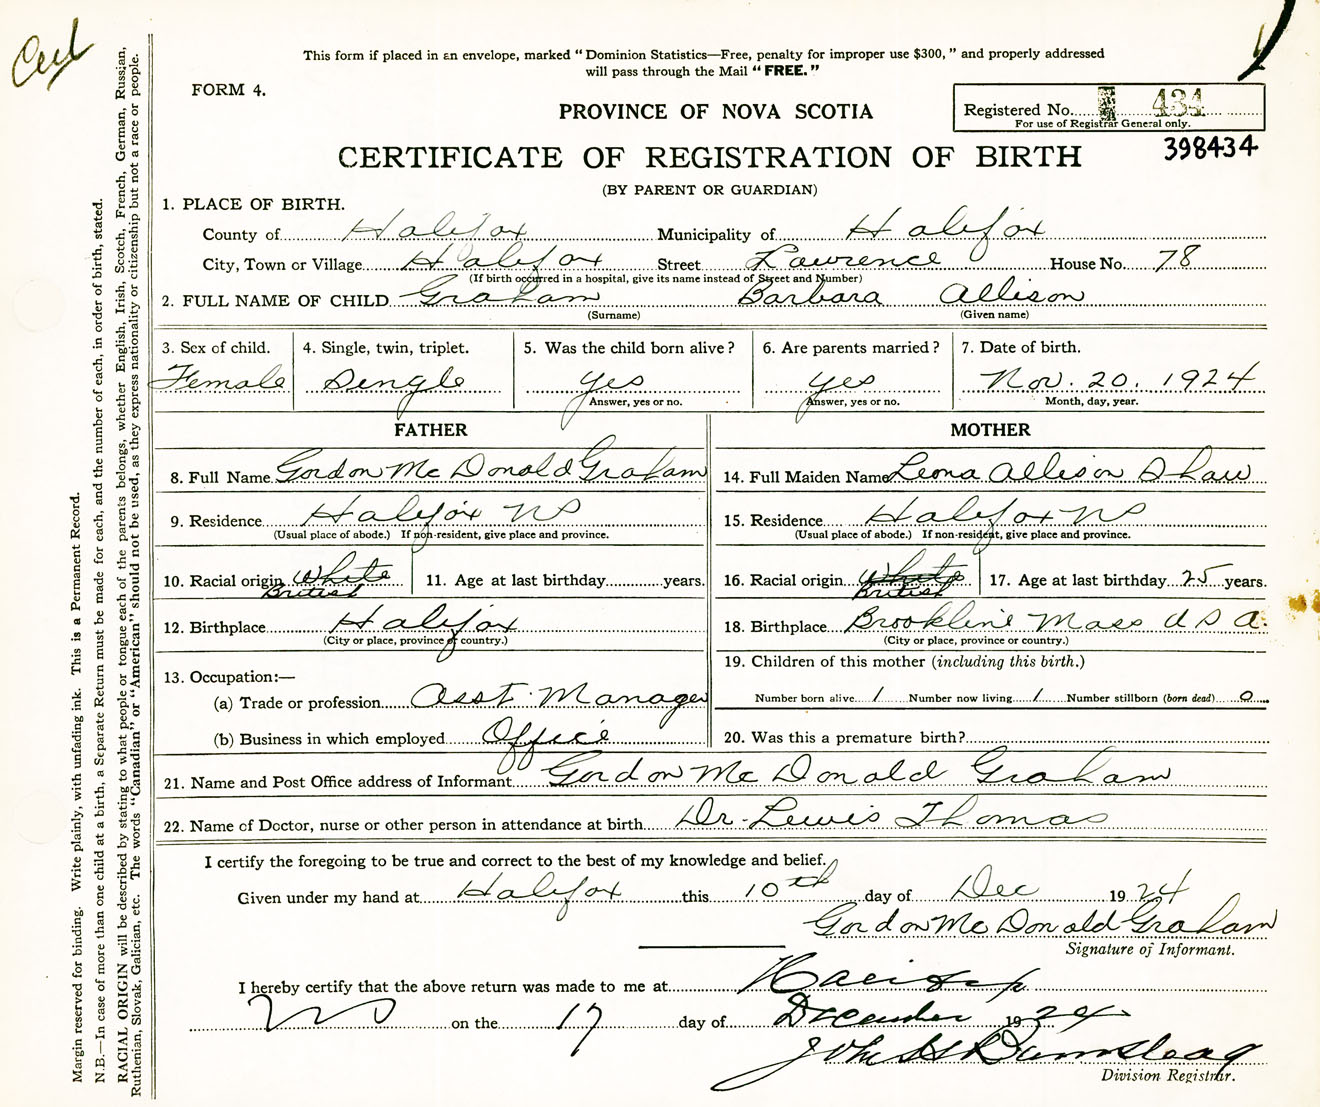 Cert
This form if placed in an envelope, marked "Dominion Statistics—Free, penalty for improper use $300," and properly addressed
will pass through the Mail "FREE."
FORM 4.
PROVINCE OF NOVA SCOTIA
Registered No. 434
For use of Registrar General only.
398434
CERTIFICATE OF REGISTRATION OF BIRTH
(BY PARENT OR GUARDIAN)
1. PLACE OF BIRTH.
County of Halifax Municipality of Halifax
City, Town or Village Halifax Street Lawrence House No. 78
(If birth occurred in a hospital, give its name instead of Street and Number)
2. FULL NAME OF CHILD Graham Barbara Allison
(Surname) (Given name)
3. Sex of child. 4. Single, twin, triplet. 5. Was the child born alive? 6. Are parents married? 7. Date of birth.
Female Single Yes Yes Nov. 20. 1924
Answer, yes or no. Answer, yes or no. Month, day, year.
FATHER MOTHER
8. Full Name Gordon McDonald Graham 14. Full Maiden Name Leona Allison Shaw
9. Residence Halifax NS 15. Residence Halifax NS
(Usual place of abode.) If non-resident, give place and province. (Usual place of abode.) If non-resident, give place and province.
10. Racial origin White 11. Age at last birthday years. 16. Racial origin White 17. Age at last birthday 25 years.
British British
12. Birthplace Halifax 18. Birthplace Brookline Mass U S A.
(City or place, province or country.) (City or place, province or country.)
19. Children of this mother (including this birth.)
13. Occupation:—
(a) Trade or profession Asst. Manager Number born alive 1 Number now living 1 Number stillborn (born dead) 0
(b) Business in which employed Office 20. Was this a premature birth?
21. Name and Post Office address of Informant Gordon McDonald Graham
22. Name of Doctor, nurse or other person in attendance at birth Dr. Lewis Thomas
I certify the foregoing to be true and correct to the best of my knowledge and belief.
Given under my hand at Halifax this 10th day of Dec 1924
Gordon McDonald Graham
Signature of Informant.
I hereby certify that the above return was made to me at Halifax
NS on the 17 day of December 1924
John H
Division Registrar.
Margin reserved for binding. Write plainly, with unfading ink. This is a Permanent Record.
N.B.—In case of more than one child at a birth, a Separate Return must be made for each, and the number of each, in order of birth, stated.
RACIAL ORIGIN will be described by stating to what people or tongue each of the parents belongs, whether English, Irish, Scotch, French, German, Russian,
Ruthenian, Slovak, Galician, etc. The words "Canadian" or "American" should not be used, as they express nationality or citizenship but not a race or people.